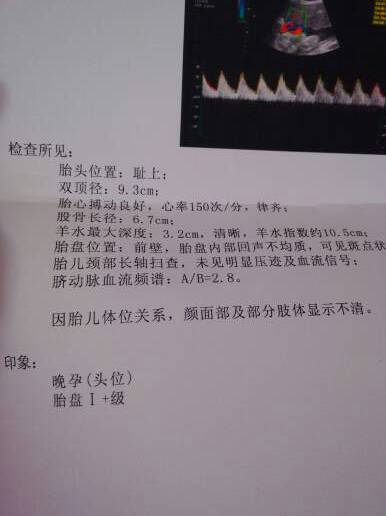 检查所见：
胎头位置：耻上；
双顶径：9.3cm；
胎心搏动良好，心率150次/分，律齐；
股骨长径：6.7cm；
羊水最大深度：3.2cm，清晰，羊水指数约10.5cm；
胎盘位置：前壁，胎盘内部回声不均质，可见斑点状
胎儿颈部长轴扫查，未见明显压迹及血流信号；
脐动脉血流频谱：A/B=2.8。
因胎儿体位关系，颜面部及部分肢体显示不清。
印象：
晚孕(头位)
胎盘Ⅰ+级